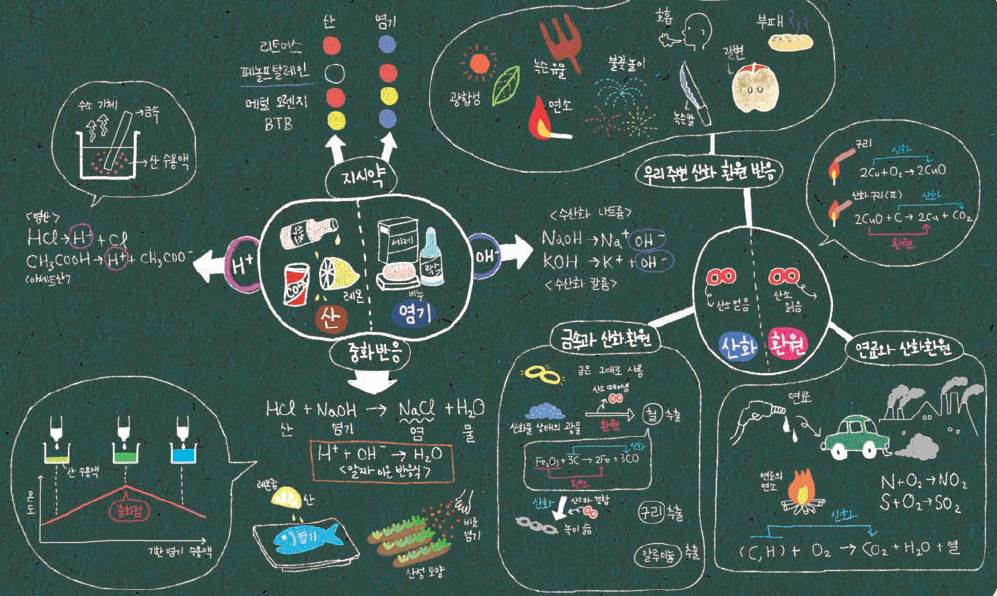 산 염기
리트머스
페놀프탈레인
메틸 오렌지
BTB
지시약
수소 기체
금속
산 수용액
<염산>
HCl→H⁺+Cl
CH₃COOH→H⁺+CH₃COO⁻
<아세트산>
H⁺
OH⁻
세제
레몬
비누
산
염기
<수산화 나트륨>
NaOH→Na⁺OH⁻
KOH→K⁺+OH⁻
<수산화 칼륨>
중화 반응
HCl+NaOH→NaCl+H₂O
산 염기 염 물
H⁺+OH⁻→H₂O
<알짜 이온 반응식>
레몬즙
산
염기
비료
염기
산성 토양
산 수용액
온도
중화점
가한 염기 수용액
광합성
녹슨 유물
연소
불꽃놀이
호흡
녹슨 칼
갈변
부패
우리 주변 산화 환원 반응
구리
산화
2Cu+O₂→2CuO
산화 구리(Ⅱ)
산화
2CuO+C→2Cu+CO₂
환원
산소 얻음
산소
잃음
산화
환원
금속과 산화 환원
금은 그대로 사용
산소 떼어냄
산화물 상태의 광물
환원
철 추출
산화
Fe₂O₃+3C→2Fe+3CO
환원
산화
산소와 결합
녹이 슮
구리 추출
알루미늄 추출
연료와 산화 환원
연료
연료의
연소
N+O₂→NO₂
S+O₂→SO₂
산화
(C,H)+O₂→CO₂+H₂O+열